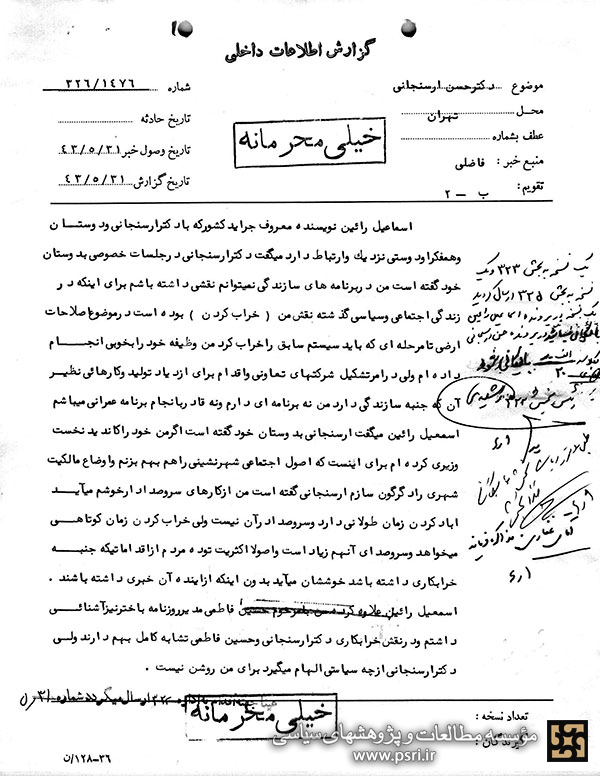 گزارش اطلاعات داخلی
موضوع : دکترحسن ارسنجانی
محل تهران
عطف بشماره
منبع خبر : فاضلی
تقویم : ب - ۲
خیلی محرمانه
شماره ۳۲۶/۱۴۷۶
تاریخ حادثه
تاریخ وصول خبر ۴۳/۵/۳۱
تاریخ گزارش ۴۳/۵/۳۱
اسماعیل رائین نویسنده معروف جراید کشورکه با دکترارسنجانی ودوستان
وهمفکراو دوستی نزدیك وارتباط دارد میگفت دکترارسنجانی درجلسات خصوصی بدوستان
خود گفته است من دربرنامه های سازندگی نمیتوانم نقشی داشته باشم برای اینکه در
زندگی اجتماعی وسیاسی گذشته نقش من ( خراب کردن ) بوده است درموضوع اصلاحات
ارضی تامرحله ای که باید سیستم سابق راخراب کرد من وظیفه خود رابخوبی انجام
داده ام ولی درامرتشکیل شرکتهای تعاونی واقدام برای ازدیاد تولید وکارهائی نظیر
آن که جنبه سازندگی دارد من نه برنامه ای دارم ونه قادربانجام برنامه عمرانی میباشم
اسمعیل رائین میگفت ارسنجانی بدوستان خود گفته است اگرمن خود راکاندید نخست
وزیری کرده ام برای اینست که اصول اجتماعی شهرنشینی راهم بهم بزنم واوضاع مالکیت
شهری راد گرگون سازم ارسنجانی گفته است من ازکارهای سروصدادارخوشم میآید
آباد کردن زمان طولانی دارد وسروصدادرآن نیست ولی خراب کردن زمان کوتاهی
میخواهد وسروصدای آنهم زیاد است واصولا اکثریت توده مردم ازاقداماتیکه جنبه
خرابکاری داشته باشد خوششان میآید بدون اینکه ازاینده آن خبری داشته باشند .
اسمعیل رائین علاوه کرده من بامرحوم حسین فاطمی مدیرروزنامه باخترنیزآشنائی
داشتم ودرنقش خرابکاری دکترارسنجانی وحسین فاطمی تشابه کامل بهم دارند ولی
دکترارسنجانی ازچه سیاستی الهام میگیرد برای من روشن نیست .
یک نسخه به بخش ۳۲۳ و یک
نسخه به بخش ۳۲۵ ارسال گردید
بایگانی شود
ارسال میگردد شماره
خیلی محرمانه
تعداد نسخه :
گیرندگان :
۳۶-۱۲۸/ن
مؤسسه مطالعات و پژوهشهای سیاسی
www.psri.ir